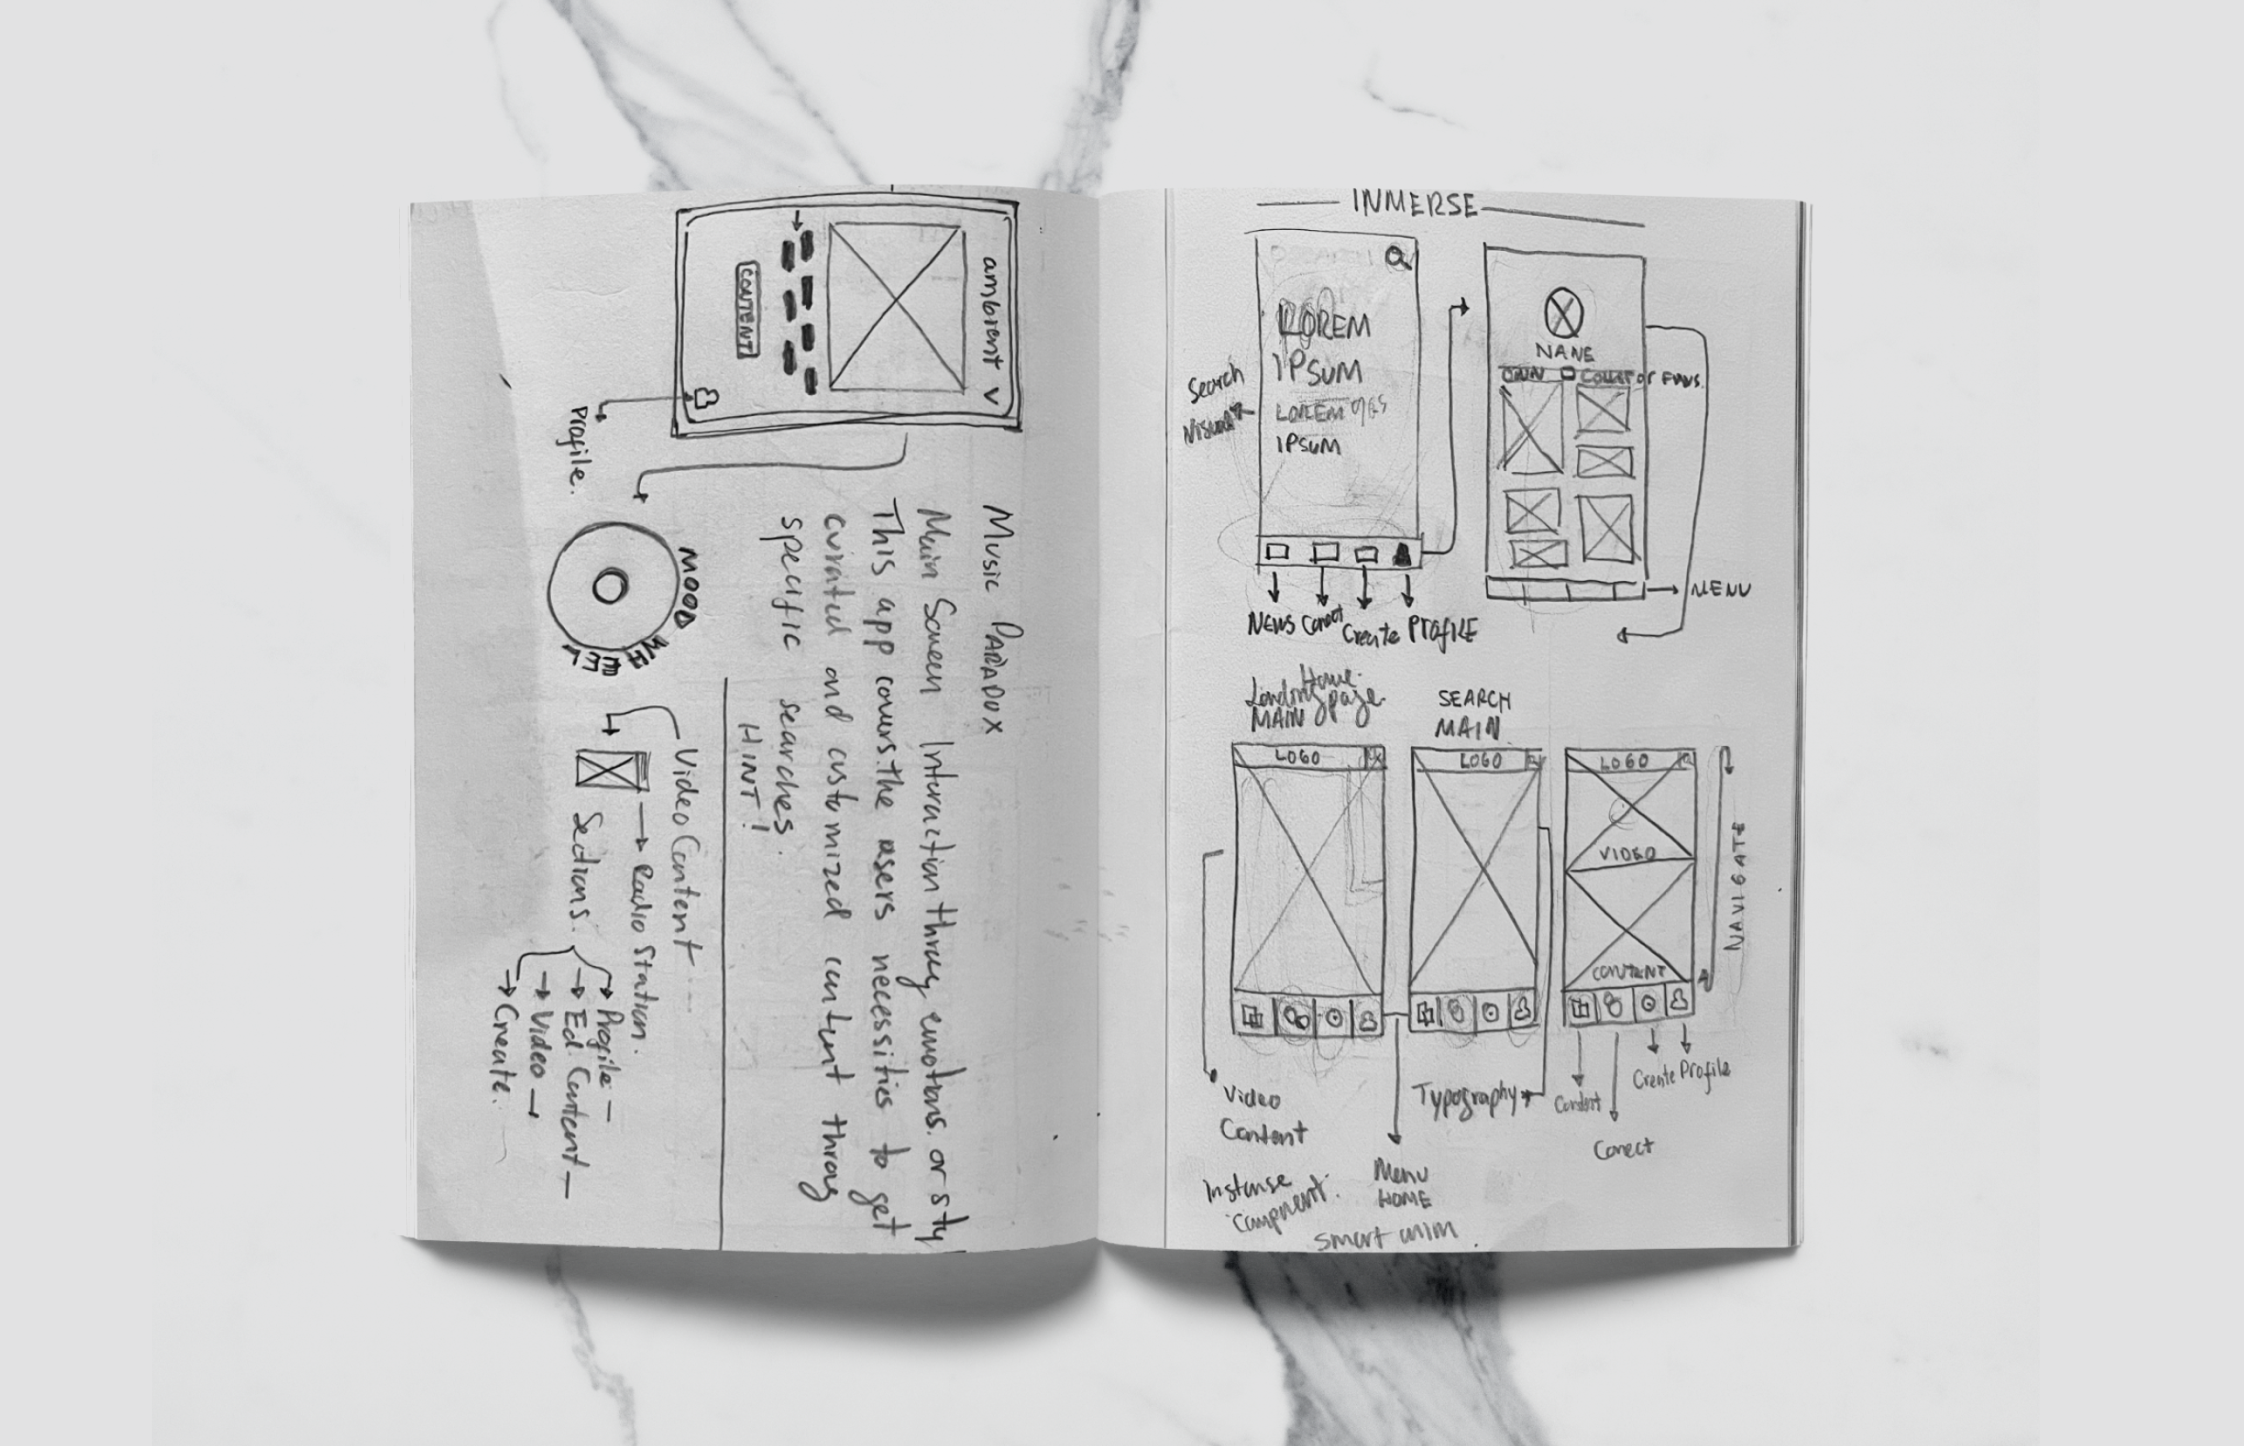 ambient
CONTENT
Profile.
MOOD
WHEEL
Music PARADOX
Main Screen Interaction throug emotions. or sty
This app covers.the users necessities to get
curated and customized content throug
specific searches.
HINT!
Video Content
Radio Station.
Sections.
Profile
Ed. Content
Video
Create.
INMERSE
LOREM
IPSUM
LOREM
IPSUM
Search
Visual
NEWS Conect Create PROFILE
NAME
MENU
Home.
Landing page.
MAIN
SEARCH
MAIN
LOGO
LOGO
LOGO
VIDEO
CONTENT
NAVIGATE
Video
Content
Typography
Content
Conect
Create Profile
Menu
HOME
Instanse
Component.
smart anim